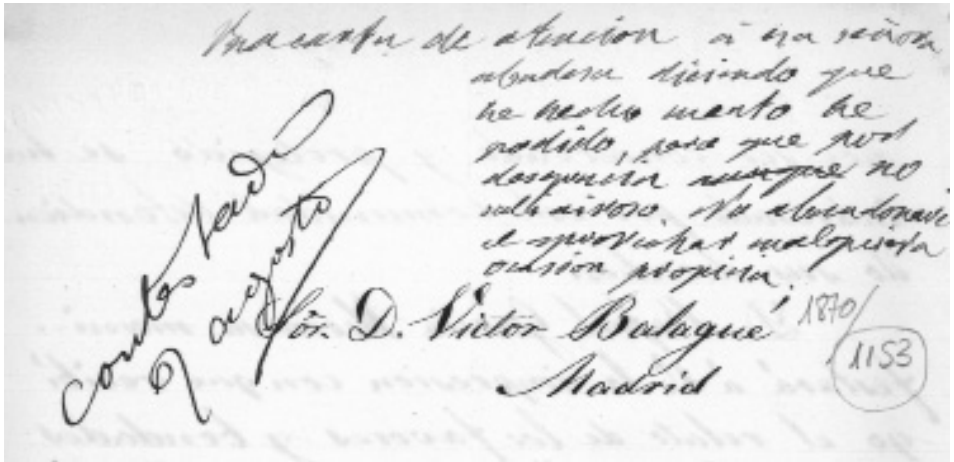 Una carta de atencion á esa señora
abadesa diciendo que
he hecho cuanto he
podido, pero que por
desgracia aunque no
salí airoso. No abandonaré
el aprovechar cualquiera
ocasion propicia.
Contestada
9 agosto
Sôr. D. Victor Balagué
Madrid
1870
1153